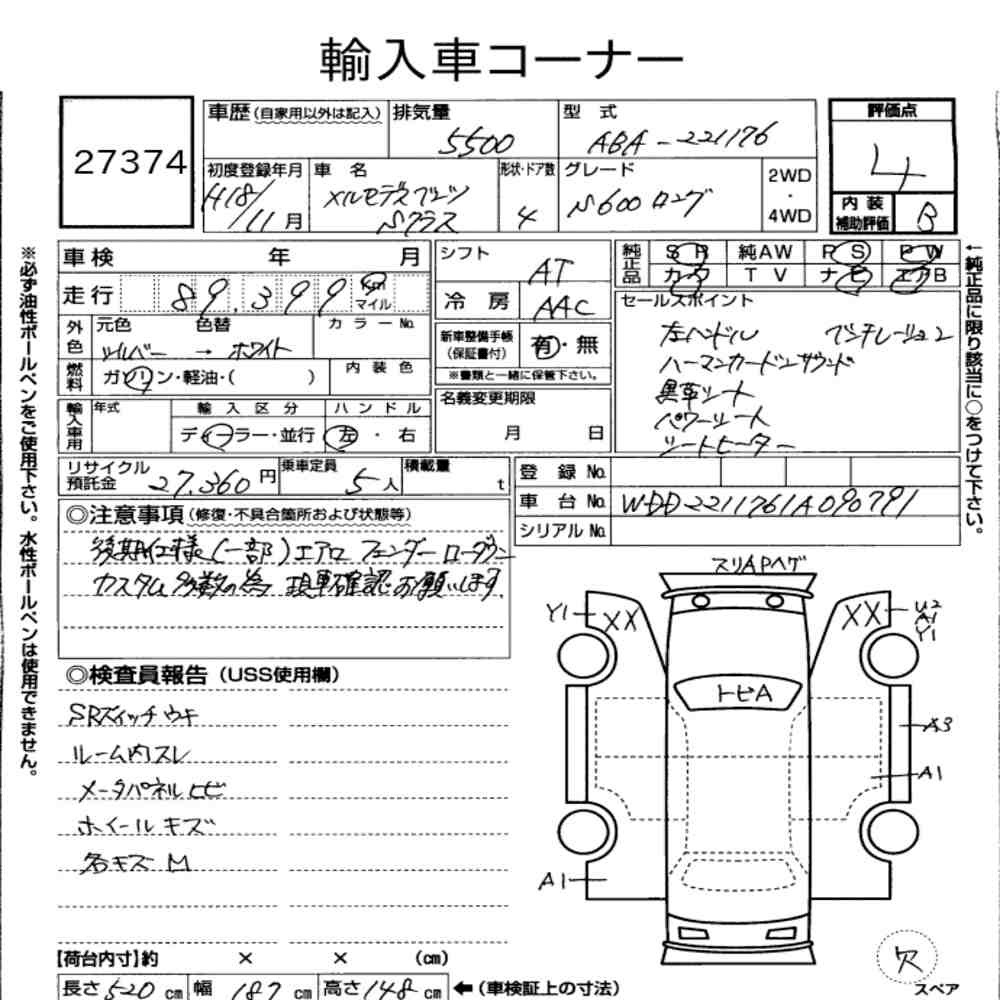 輸入車コーナー
27374
車歴(自家用以外は記入)
排気量 5500
型式 ABA-221176
評価点 4
初度登録年月 H18/11月
車名 メルセデスベンツ Sクラス
形状・ドア数 4
グレード S600 ロング
2WD・4WD
内装補助評価 B
車検 年 月
走行 89,399 Km マイル
シフト AT
冷房 AAC
純正品 SR 純AW PS PW
カワ TV ナビ エアB
外色 元色 色替 カラーNo.
シルバー → ホワイト
燃料 ガソリン・軽油・( )
内装色
新車整備手帳(保証書付) 有・無
※書類と一緒に保管下さい。
セールスポイント
左ハンドル ベンチレーション
ハーマンカードンサウンド
黒革シート
パワーシート
シートヒーター
輸入車用 年式 輸入区分 ハンドル
ディーラー・並行 左・右
名義変更期限
月 日
リサイクル預託金 27,360円
乗車定員 5人
積載量 t
登録No.
車台No. WDD2211761A090791
シリアルNo.
◎注意事項(修復・不具合箇所および状態等)
後期仕様(一部)エアロ フェンダー ローダウン
カスタム多数の為 現車確認お願いします
◎検査員報告(USS使用欄)
SRスイッチウキ
ルーム内スレ
メータパネルヒビ
ホイールキズ
各キズM
スリAPハゲ
Y1 XX XX U2
A1
Y1
トビA
A3
A1
A1
欠
スペア
【荷台内寸】約 × × (cm)
長さ520cm 幅187cm 高さ148cm ←(車検証上の寸法)
※必ず油性ボールペンをご使用下さい。水性ボールペンは使用できません。
←純正品に限り該当に○をつけて下さい。